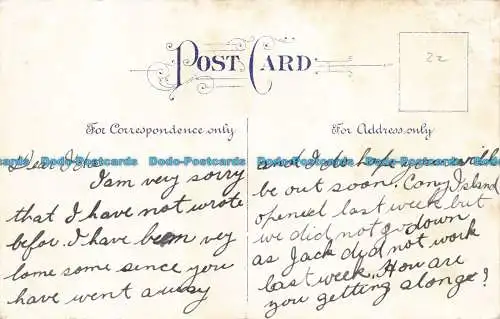 22
POST CARD
For Correspondence only
For Address only
Dear Ida
I am very sorry
that I have not wrote
befor. I have been vey
lome some since you
have went away
and I do hope you will
be out soon. Cony Island
opened last week but
we did not go down
as Jack did not work
last week. How are
you getting alonge?
Dodo-Postcards Dodo-Postcards Dodo-Postcards Dodo-Postcards